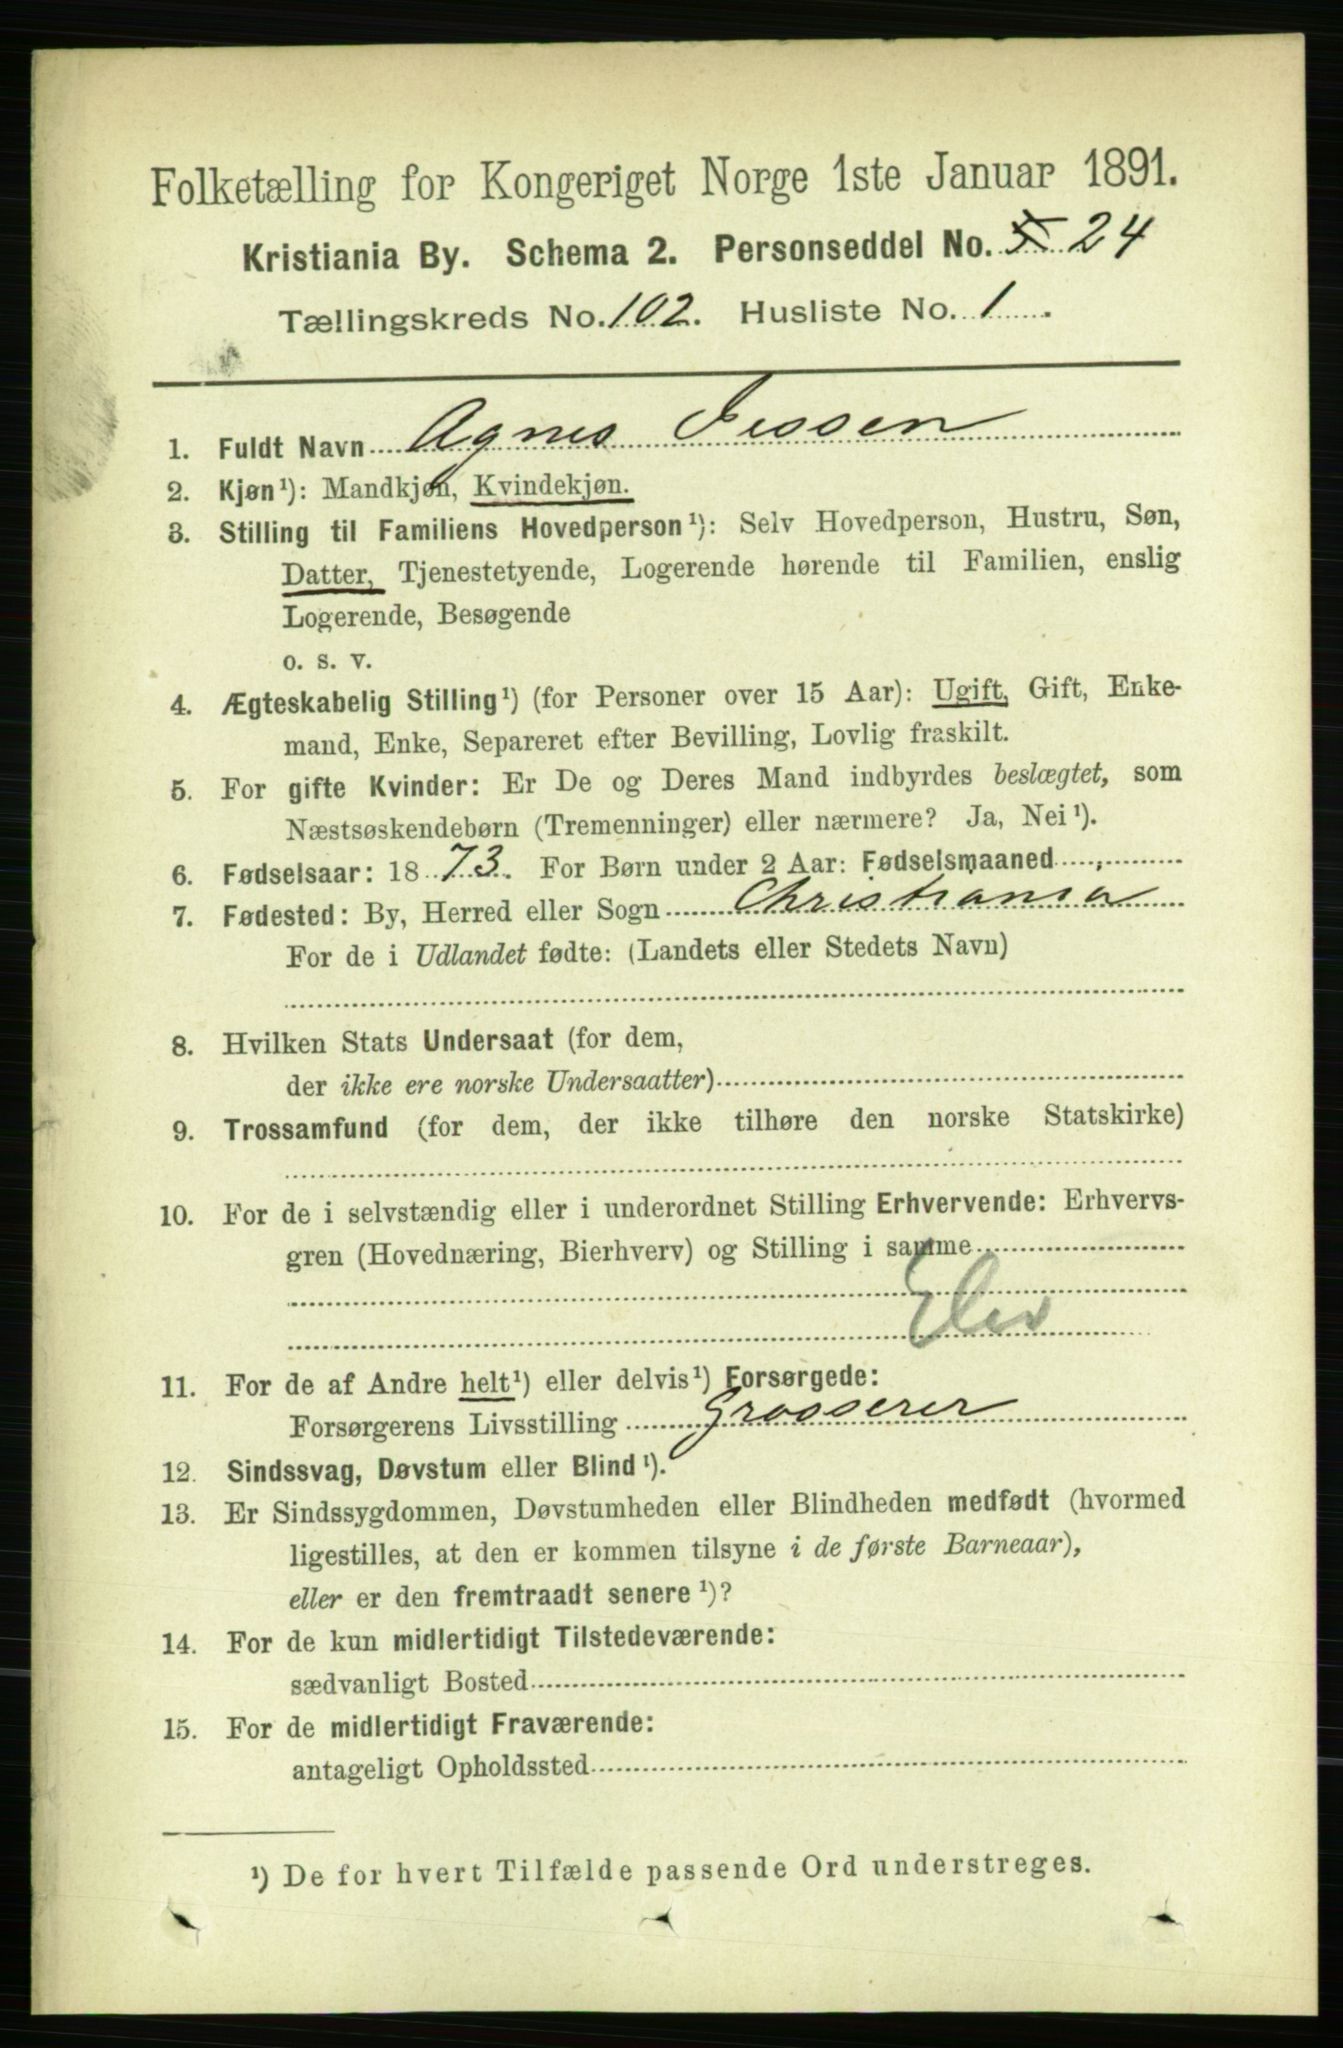 Folketælling for Kongeriget Norge 1ste Januar 1891.
Kristiania By. Schema 2. Personseddel No. 5 24
Tællingskreds No. 102. Husliste No. 1.
1. Fuldt Navn Agnes Jessen
2. Kjøn¹): Mandkjøn, Kvindekjøn.
3. Stilling til Familiens Hovedperson¹): Selv Hovedperson, Hustru, Søn,
Datter, Tjenestetyende, Logerende hørende til Familien, enslig
Logerende, Besøgende
o. s. v.
4. Ægteskabelig Stilling¹) (for Personer over 15 Aar): Ugift, Gift, Enke-
mand, Enke, Separeret efter Bevilling, Lovlig fraskilt.
5. For gifte Kvinder: Er De og Deres Mand indbyrdes beslægtet, som
Næstsøskendebørn (Tremenninger) eller nærmere? Ja, Nei¹).
6. Fødselsaar: 1873. For Børn under 2 Aar: Fødselsmaaned
7. Fødested: By, Herred eller Sogn Christiania
For de i Udlandet fødte: (Landets eller Stedets Navn)
8. Hvilken Stats Undersaat (for dem,
der ikke ere norske Undersaatter)
9. Trossamfund (for dem, der ikke tilhøre den norske Statskirke)
10. For de i selvstændig eller i underordnet Stilling Erhvervende: Erhvervs-
gren (Hovednæring, Bierhverv) og Stilling i samme
Elev
11. For de af Andre helt¹) eller delvis¹) Forsørgede:
Forsørgerens Livsstilling Grosserer
12. Sindssvag, Døvstum eller Blind¹).
13. Er Sindssygdommen, Døvstumheden eller Blindheden medfødt (hvormed
ligestilles, at den er kommen tilsyne i de første Barneaar),
eller er den fremtraadt senere¹)?
14. For de kun midlertidigt Tilstedeværende:
sædvanligt Bosted
15. For de midlertidigt Fraværende:
antageligt Opholdssted
¹) De for hvert Tilfælde passende Ord understreges.